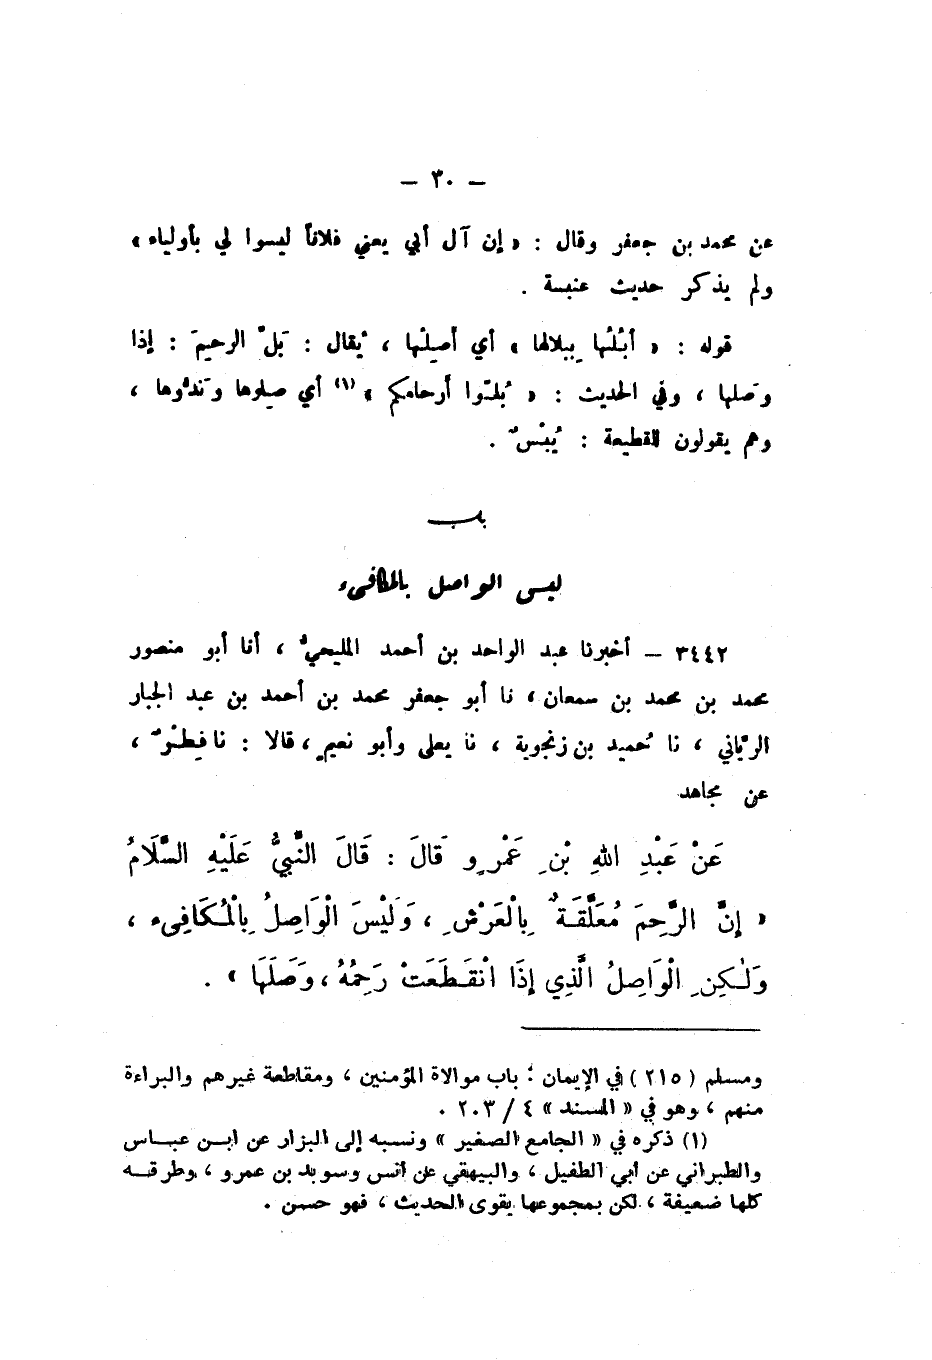 — ٣٠ —
عن محمد بن جعفر وقال : « إن آل أبي يعني فلاناً ليسوا لي بأولياء »
ولم يذكر حديث عنبسة .
قوله : « أَبُلُّها بِبِلالها » أي أصِلُها ، يُقال : بَلَّ الرحِمَ : إذا
وصَلها ، وفي الحديث : « بُلّوا أرحامكم » (١) أي صِلوها وَندُّوها ،
وهم يقولون للقطيعة : يُبْسٌ .
باب
ليس الواصل بالمكافىء
٣٤٤٢ – أخبرنا عبد الواحد بن أحمد المليحيُّ ، أنا أبو منصور
محمد بن محمد بن سمعان ، نا أبو جعفر محمد بن أحمد بن عبد الجبار
الريّاني ، نا حُميد بن زنجوية ، نا يعلى وأبو نعيمٍ ، قالا : نا فِطْرٌ ،
عن مجاهد
عَنْ عَبْدِ اللهِ بْنِ عَمْرٍو قَالَ : قَالَ النَّبِيُّ عَلَيْهِ السَّلَامُ
« إِنَّ الرَّحِمَ مُعَلَّقَةٌ بِالْعَرْشِ ، وَلَيْسَ الْوَاصِلُ بِالْمُكَافِىء ،
وَلٰكِنِ الْوَاصِلُ الَّذِي إِذَا انْقَطَعَتْ رَحِمُهُ ، وَصَلَهَا » .
ومسلم ( ٢١٥ ) في الإيمان : باب موالاة المؤمنين ، ومقاطعة غيرهم والبراءة
منهم ، وهو في « المسند » ٤ / ٢٠٣ .
(١) ذكره في « الجامع الصغير » ونسبه إلى البزار عن ابن عباس
والطبراني عن أبي الطفيل ، والبيهقي عن أنس وسويد بن عمرو ، وطرقه
كلها ضعيفة ، لكن بمجموعها يقوى الحديث ، فهو حسن .